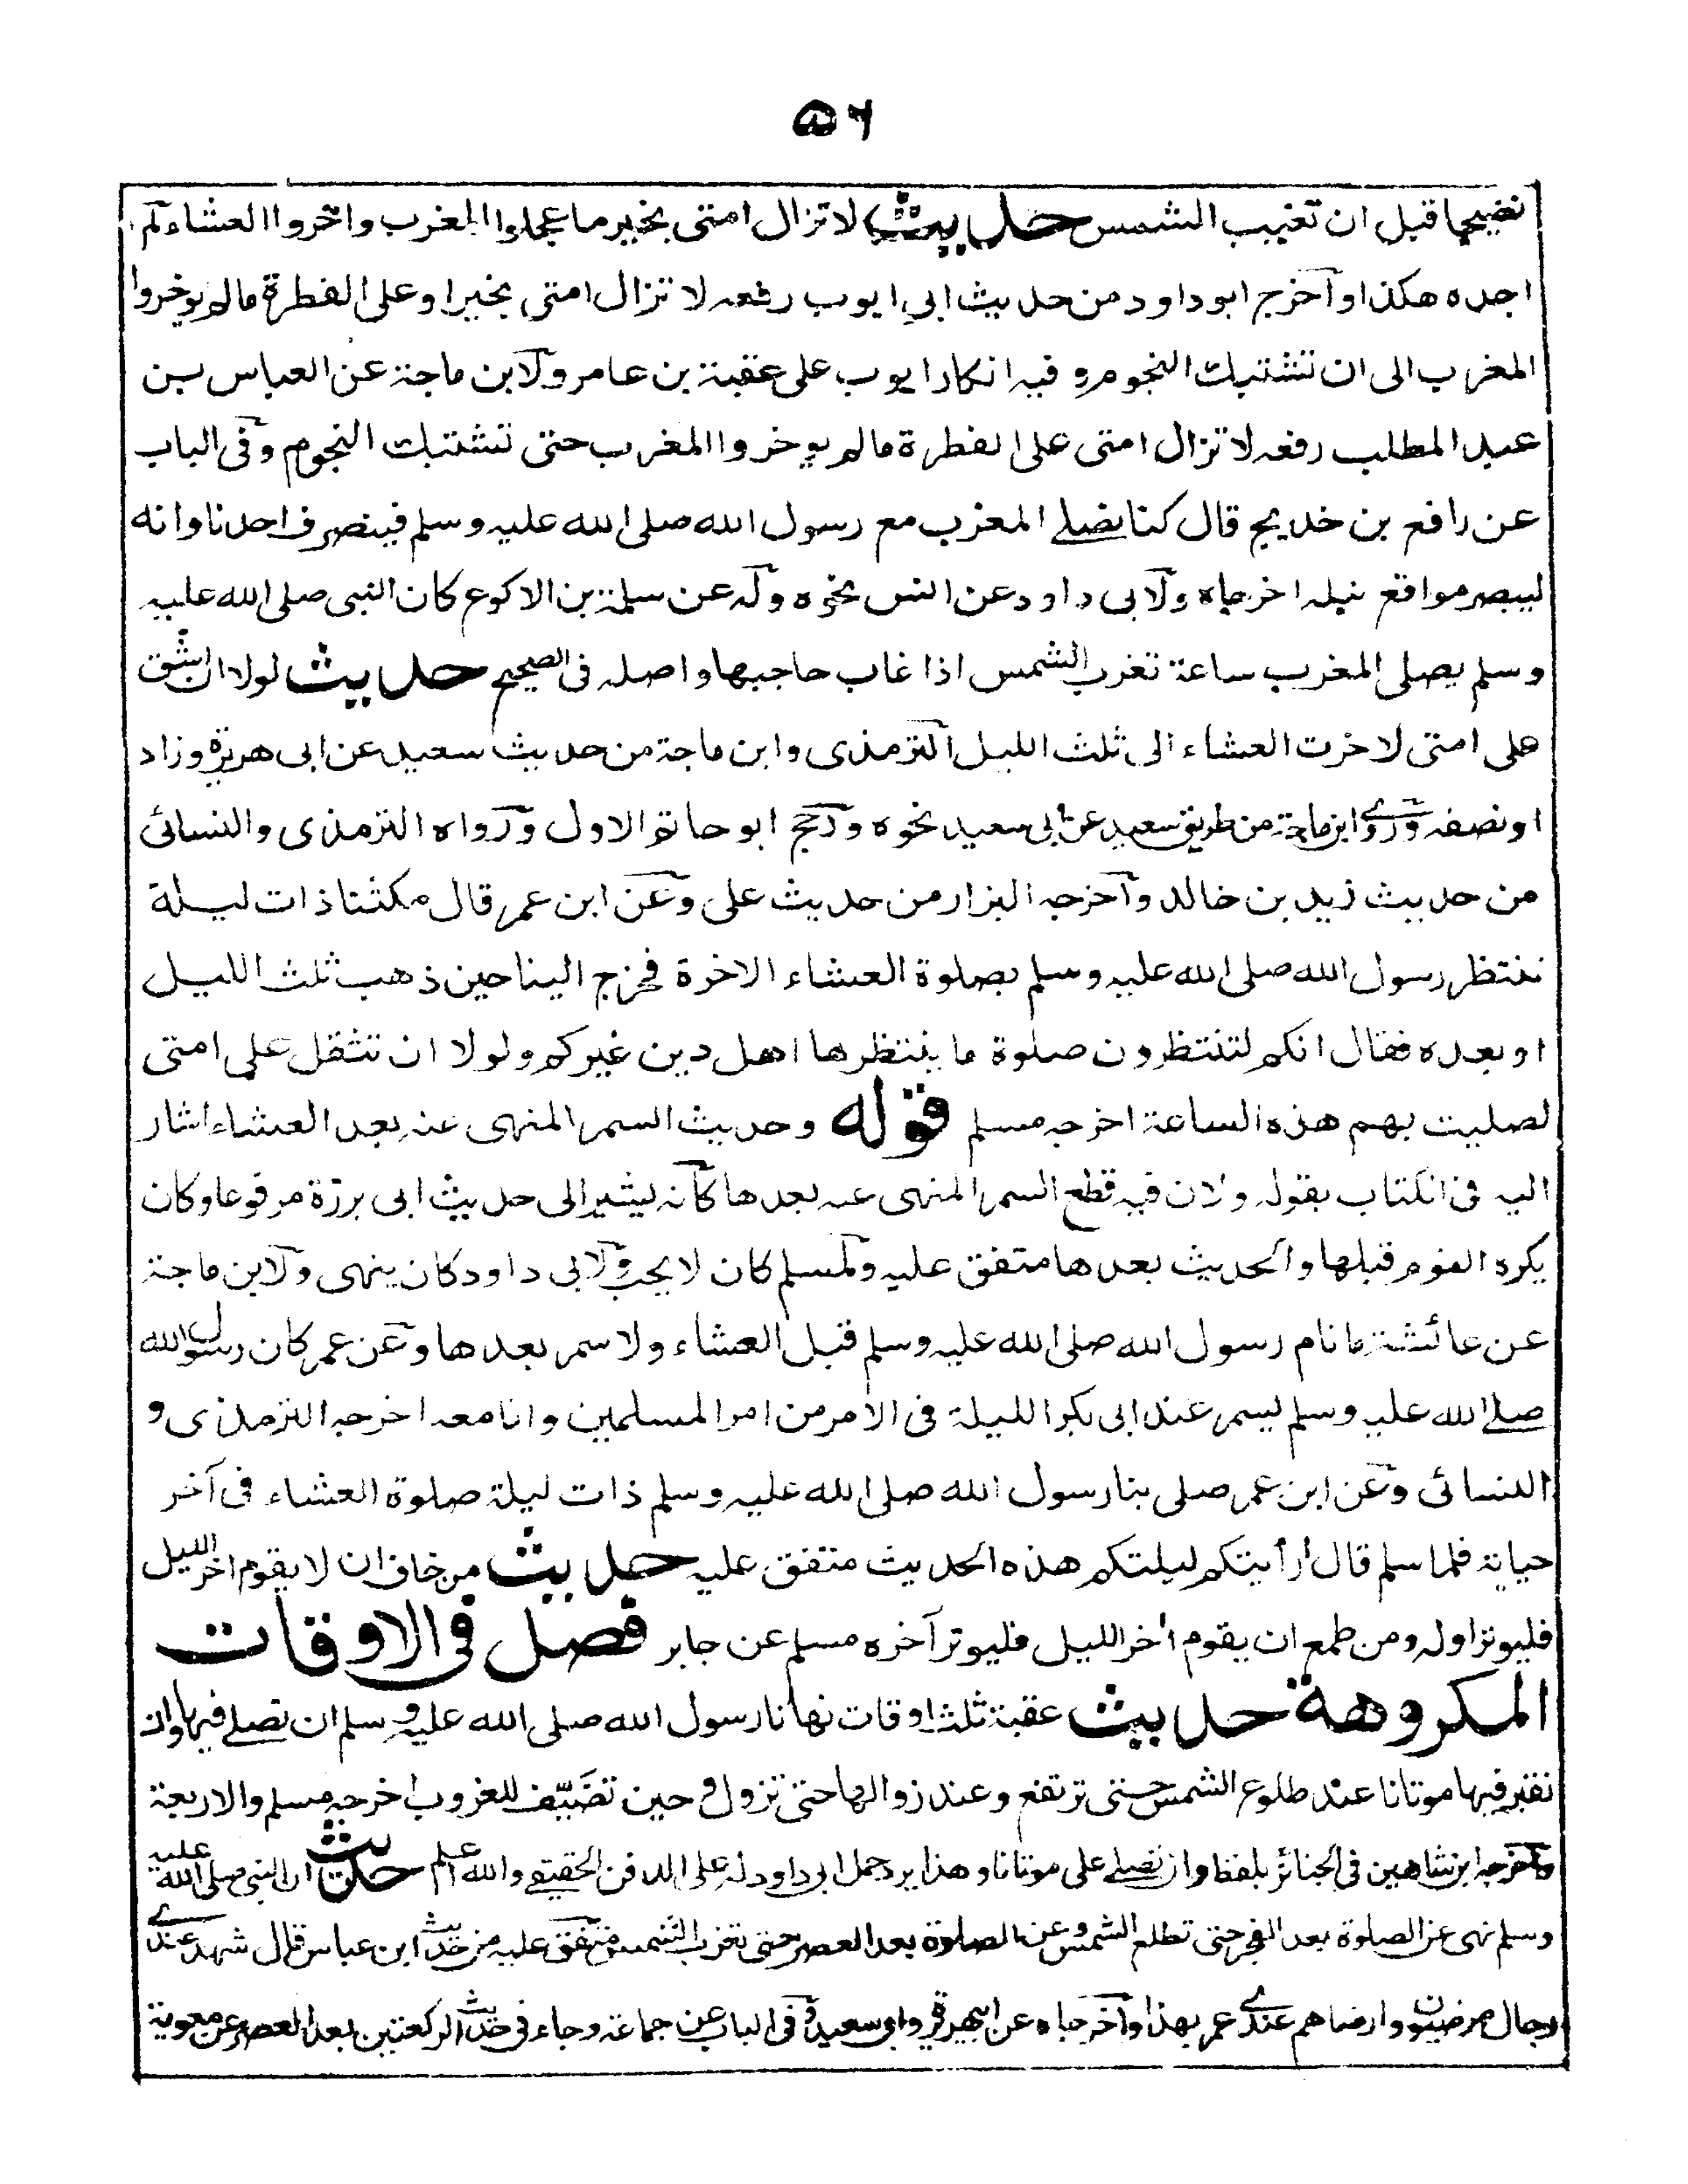 ۵۶
نضيجا قبل ان تغيب الشمس حديث لا تزال امتى بخير ما عجلوا المغرب واخروا العشاء لم
اجده هكذا واخرج ابو داود من حديث ابى ايوب رفعه لا تزال امتى بخير او على الفطرة ما لم يوخروا
المغرب الى ان تشتبك النجوم و فيه انكار ايوب على عقبة بن عامر ولابن ماجة عن العباس بن
عبد المطلب رفعه لا تزال امتى على الفطرة ما لم يوخروا المغرب حتى تشتبك النجوم وفى الباب
عن رافع بن خديج قال كنا نصلے المغرب مع رسول الله صلى الله عليه وسلم فينصرف احدنا وانه
ليبصر مواقع نبله اخرجاه ولابى داود عن انس نحوه وله عن سلمة بن الاكوع كان النبى صلى الله عليه
وسلم يصلى المغرب ساعة تغرب الشمس اذا غاب حاجبها واصله فى الصحيح حديث لولا ان اشق
على امتى لاخرت العشاء الى ثلث الليل الترمذى وابن ماجة من حديث سعيد عن ابى هريرة وزاد
او نصفه وروے ابن ماجة من طريق سعيد عن ابى سعيد نحوه ورجح ابو حاتم الاول ورواه الترمذى والنسائى
من حديث زيد بن خالد واخرجه البزار من حديث على وعن ابن عمر قال مكثنا ذات ليلة
ننتظر رسول الله صلى الله عليه وسلم بصلوة العشاء الاخرة فخرج الينا حين ذهب ثلث الليل
او بعده فقال انكم لتنتظرون صلوة ما ينتظرها اهل دين غيركم ولولا ان تثقل على امتى
لصليت بهم هذه الساعة اخرجه مسلم قوله وحديث السمر المنهى عنه بعد العشاء اشار
اليه فى الكتاب بقوله ولان فيه قطع السمر المنهى عنه بعدها كانه يشير الى حديث ابى برزة مرفوعا وكان
يكره النوم قبلها والحديث بعدها متفق عليه ولمسلم كان لا يحب ولابى داود كان ينهى ولابن ماجة
عن عائشة ما نام رسول الله صلى الله عليه وسلم قبل العشاء ولا سمر بعدها وعن عمر كان رسول الله
صلے الله عليه وسلم يسمر عند ابى بكر الليلة فى الامر من امر المسلمين وانا معه اخرجه الترمذى و
النسائى وعن ابن عمر صلى بنا رسول الله صلى الله عليه وسلم ذات ليلة صلوة العشاء فى آخر
حياته فلما سلم قال أرأيتكم ليلتكم هذه الحديث متفق عليه حديث من خاف ان لا يقوم اخر الليل
فليوتر اوله ومن طمع ان يقوم اخر الليل فليوتر آخره مسلم عن جابر فصل فى الاوقات
المكروهة حديث عقبة ثلث اوقات نهانا رسول الله صلى الله عليه وسلم ان نصلے فيها وان
نقبر فيها موتانا عند طلوع الشمس حتى ترتفع وعند زوالها حتى تزول و حين تضيّف للغروب اخرجه مسلم والاربعة
واخرجه ابن شاهين فى الجنائز بلفظ وان نصلے على موتانا وهذا يرد حمل ابى داود له على الدفن الحقيقے والله اعلم حديث ان النبى صلى الله عليه
وسلم نهى عن الصلوة بعد الفجر حتى تطلع الشمس وعن الصلوة بعد العصر حتى تغرب الشمس متفق عليه من حديث ابن عباس قال شهد عندے
رجال مرضيون وارضاهم عندے عمر بهذا واخرجاه عن ابى هريرة وابى سعيد وفى الباب عن جماعة وجاء فى حديث الركعتين بعد العصر عن معوية